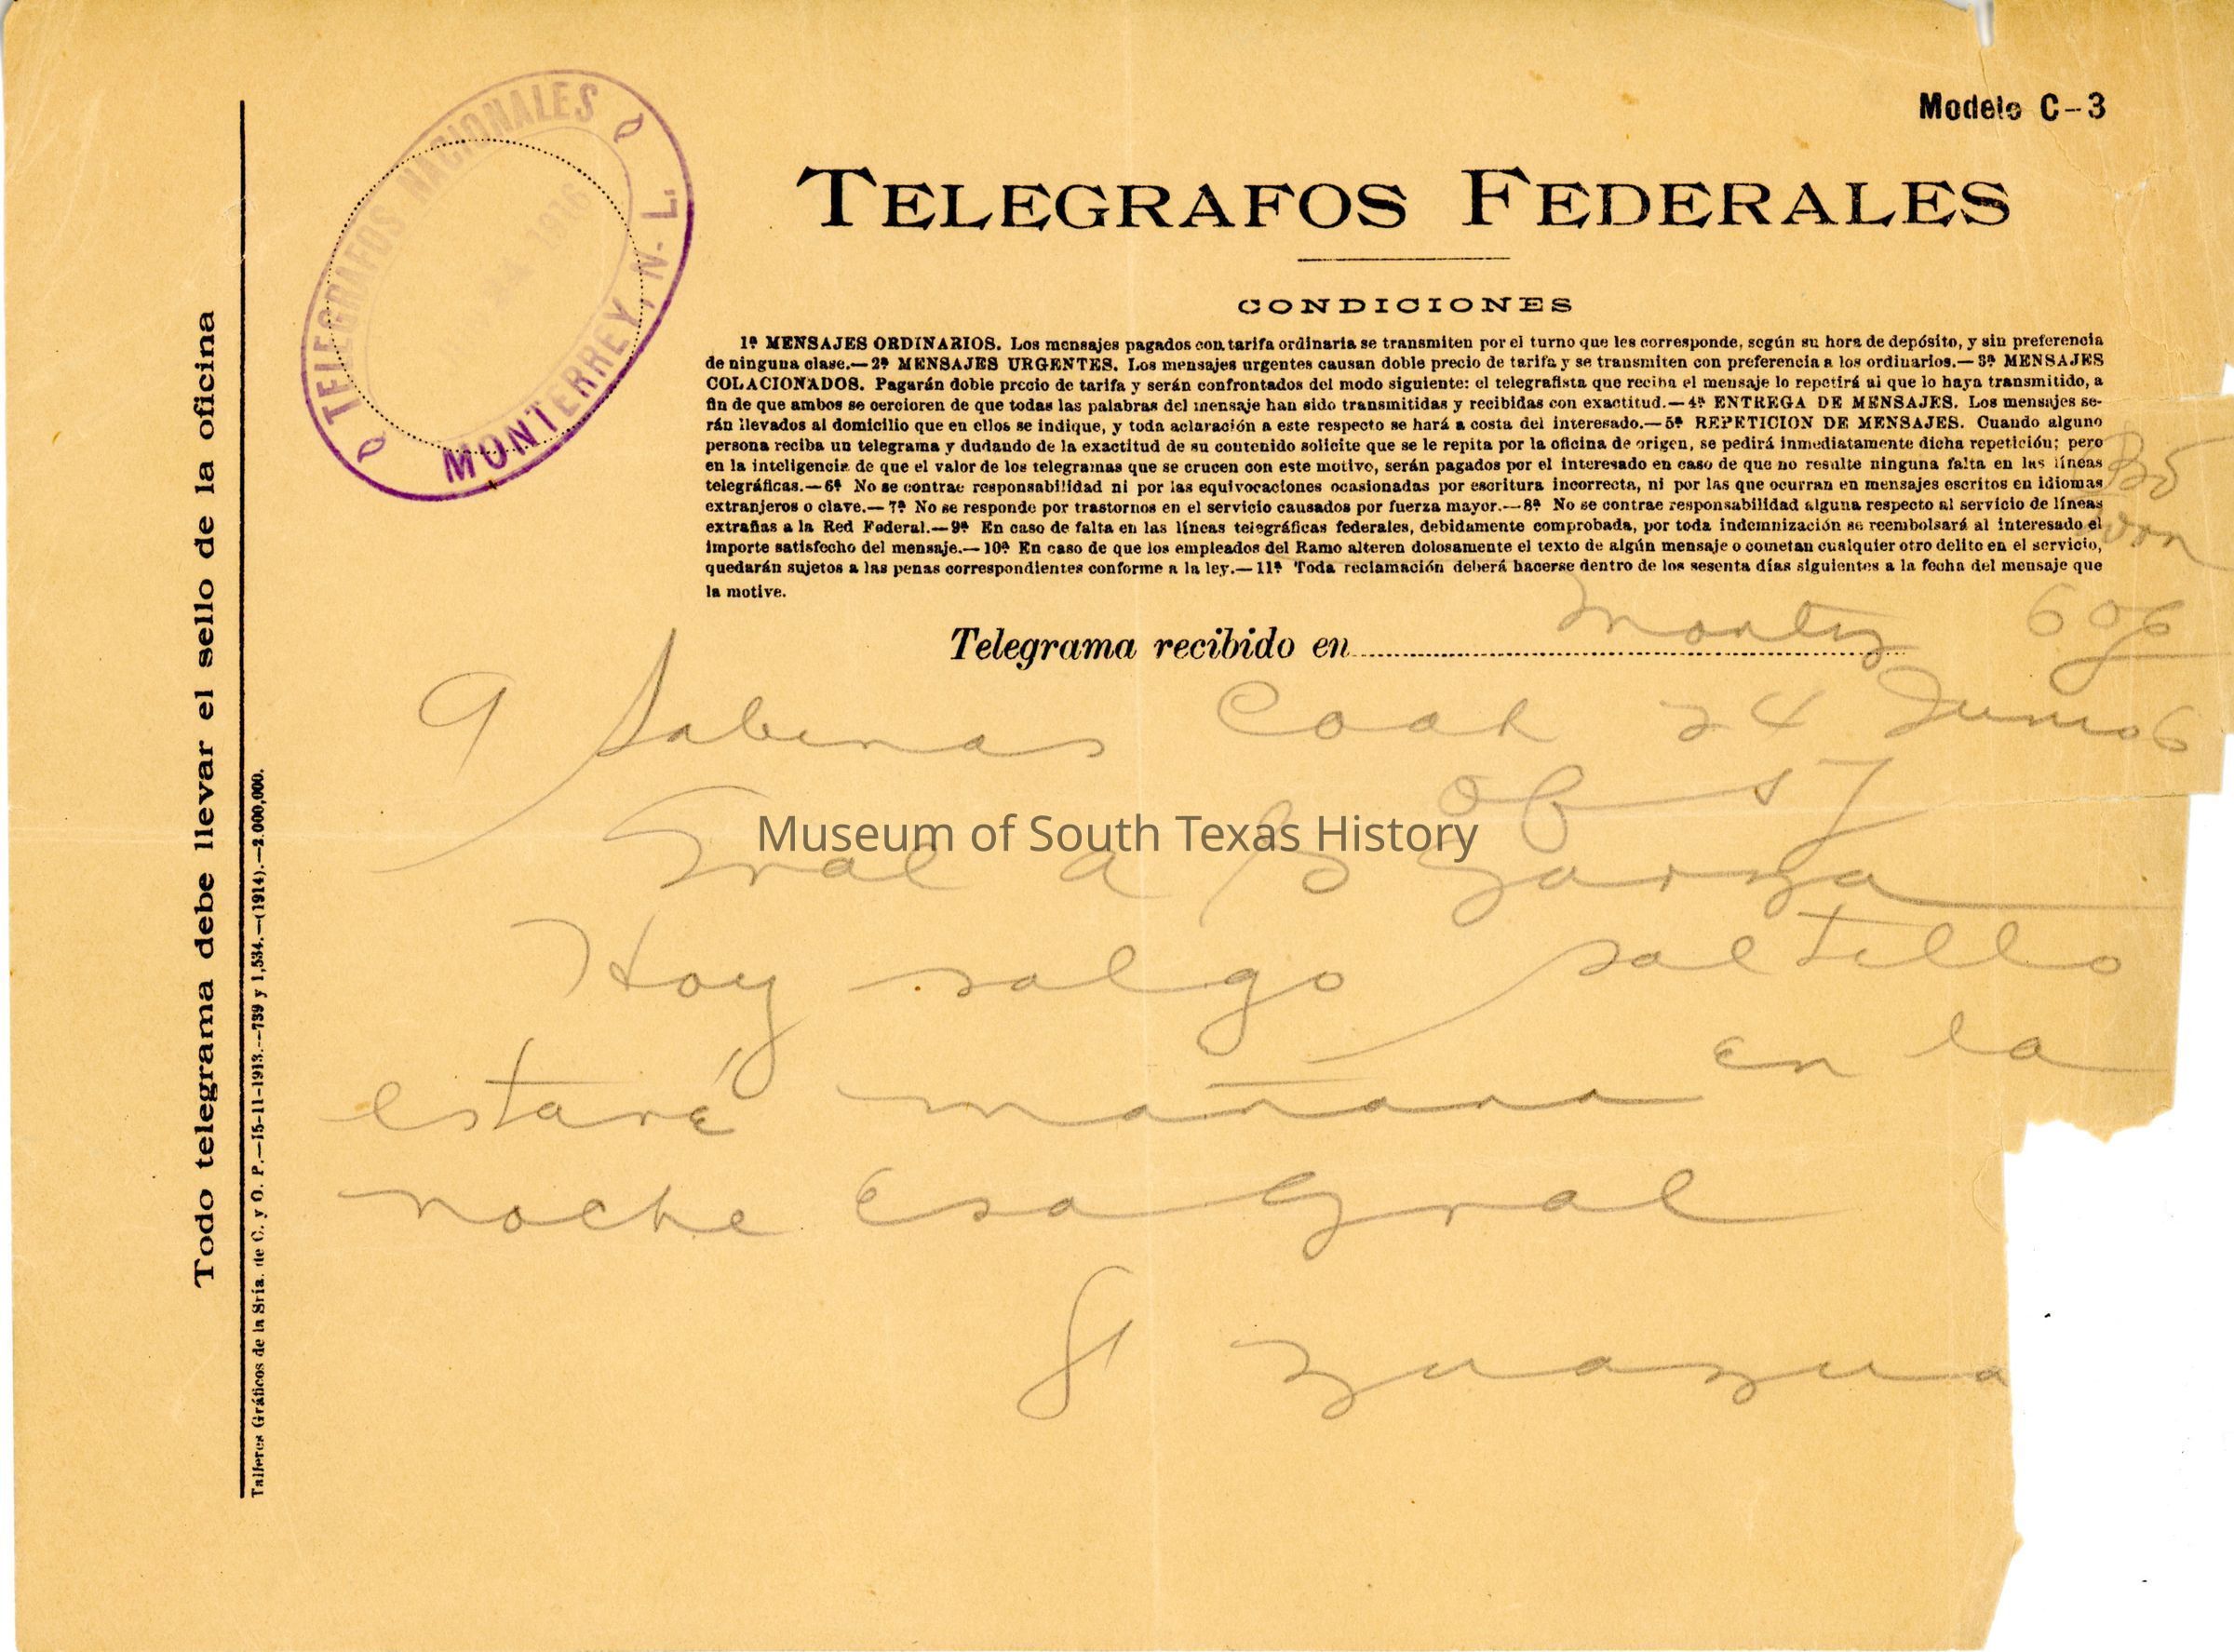 Modelo C-3
TELEGRAFOS NACIONALES
1916
MONTERREY, N. L.
TELEGRAFOS FEDERALES
CONDICIONES
1ª MENSAJES ORDINARIOS. Los mensajes pagados con tarifa ordinaria se transmiten por el turno que les corresponde, según su hora de depósito, y sin preferencia
de ninguna clase.—2ª MENSAJES URGENTES. Los mensajes urgentes causan doble precio de tarifa y se transmiten con preferencia a los ordinarios.—3ª MENSAJES
COLACIONADOS. Pagarán doble precio de tarifa y serán confrontados del modo siguiente: el telegrafista que reciba el mensaje lo repetirá al que lo haya transmitido, a
fin de que ambos se cercioren de que todas las palabras del mensaje han sido transmitidas y recibidas con exactitud.—4ª ENTREGA DE MENSAJES. Los mensajes se-
rán llevados al domicilio que en ellos se indique, y toda aclaración a este respecto se hará a costa del interesado.—5ª REPETICION DE MENSAJES. Cuando alguno
persona reciba un telegrama y dudando de la exactitud de su contenido solicite que se le repita por la oficina de origen, se pedirá inmediatamente dicha repetición; pero
en la inteligencia de que el valor de los telegramas que se crucen con este motivo, serán pagados por el interesado en caso de que no resulte ninguna falta en las líneas
telegráficas.—6ª No se contrae responsabilidad ni por las equivocaciones ocasionadas por escritura incorrecta, ni por las que ocurran en mensajes escritos en idiomas
extranjeros o clave.—7ª No se responde por trastornos en el servicio causados por fuerza mayor.—8ª No se contrae responsabilidad alguna respecto al servicio de líneas
extrañas a la Red Federal.—9ª En caso de falta en las líneas telegráficas federales, debidamente comprobada, por toda indemnización se reembolsará al interesado el
importe satisfecho del mensaje.—10ª En caso de que los empleados del Ramo alteren dolosamente el texto de algún mensaje o cometan cualquier otro delito en el servicio,
quedarán sujetos a las penas correspondientes conforme a la ley.—11ª Toda reclamación deberá hacerse dentro de los sesenta días siguientes a la fecha del mensaje que
la motive.
Telegrama recibido en Montey 606
9 Sabinas Coah 24 Junio 6
of s7
Gral A B Garza
Hoy salgo saltillo
estaré mañana en la
noche Esa Gral
F Zuazua
Todo telegrama debe llevar el sello de la oficina
Talleres Gráficos de la Sria. de C. y O. P.—15-11-1913.—739 y 1,534.—(1914).—2.000,000.
Museum of South Texas History